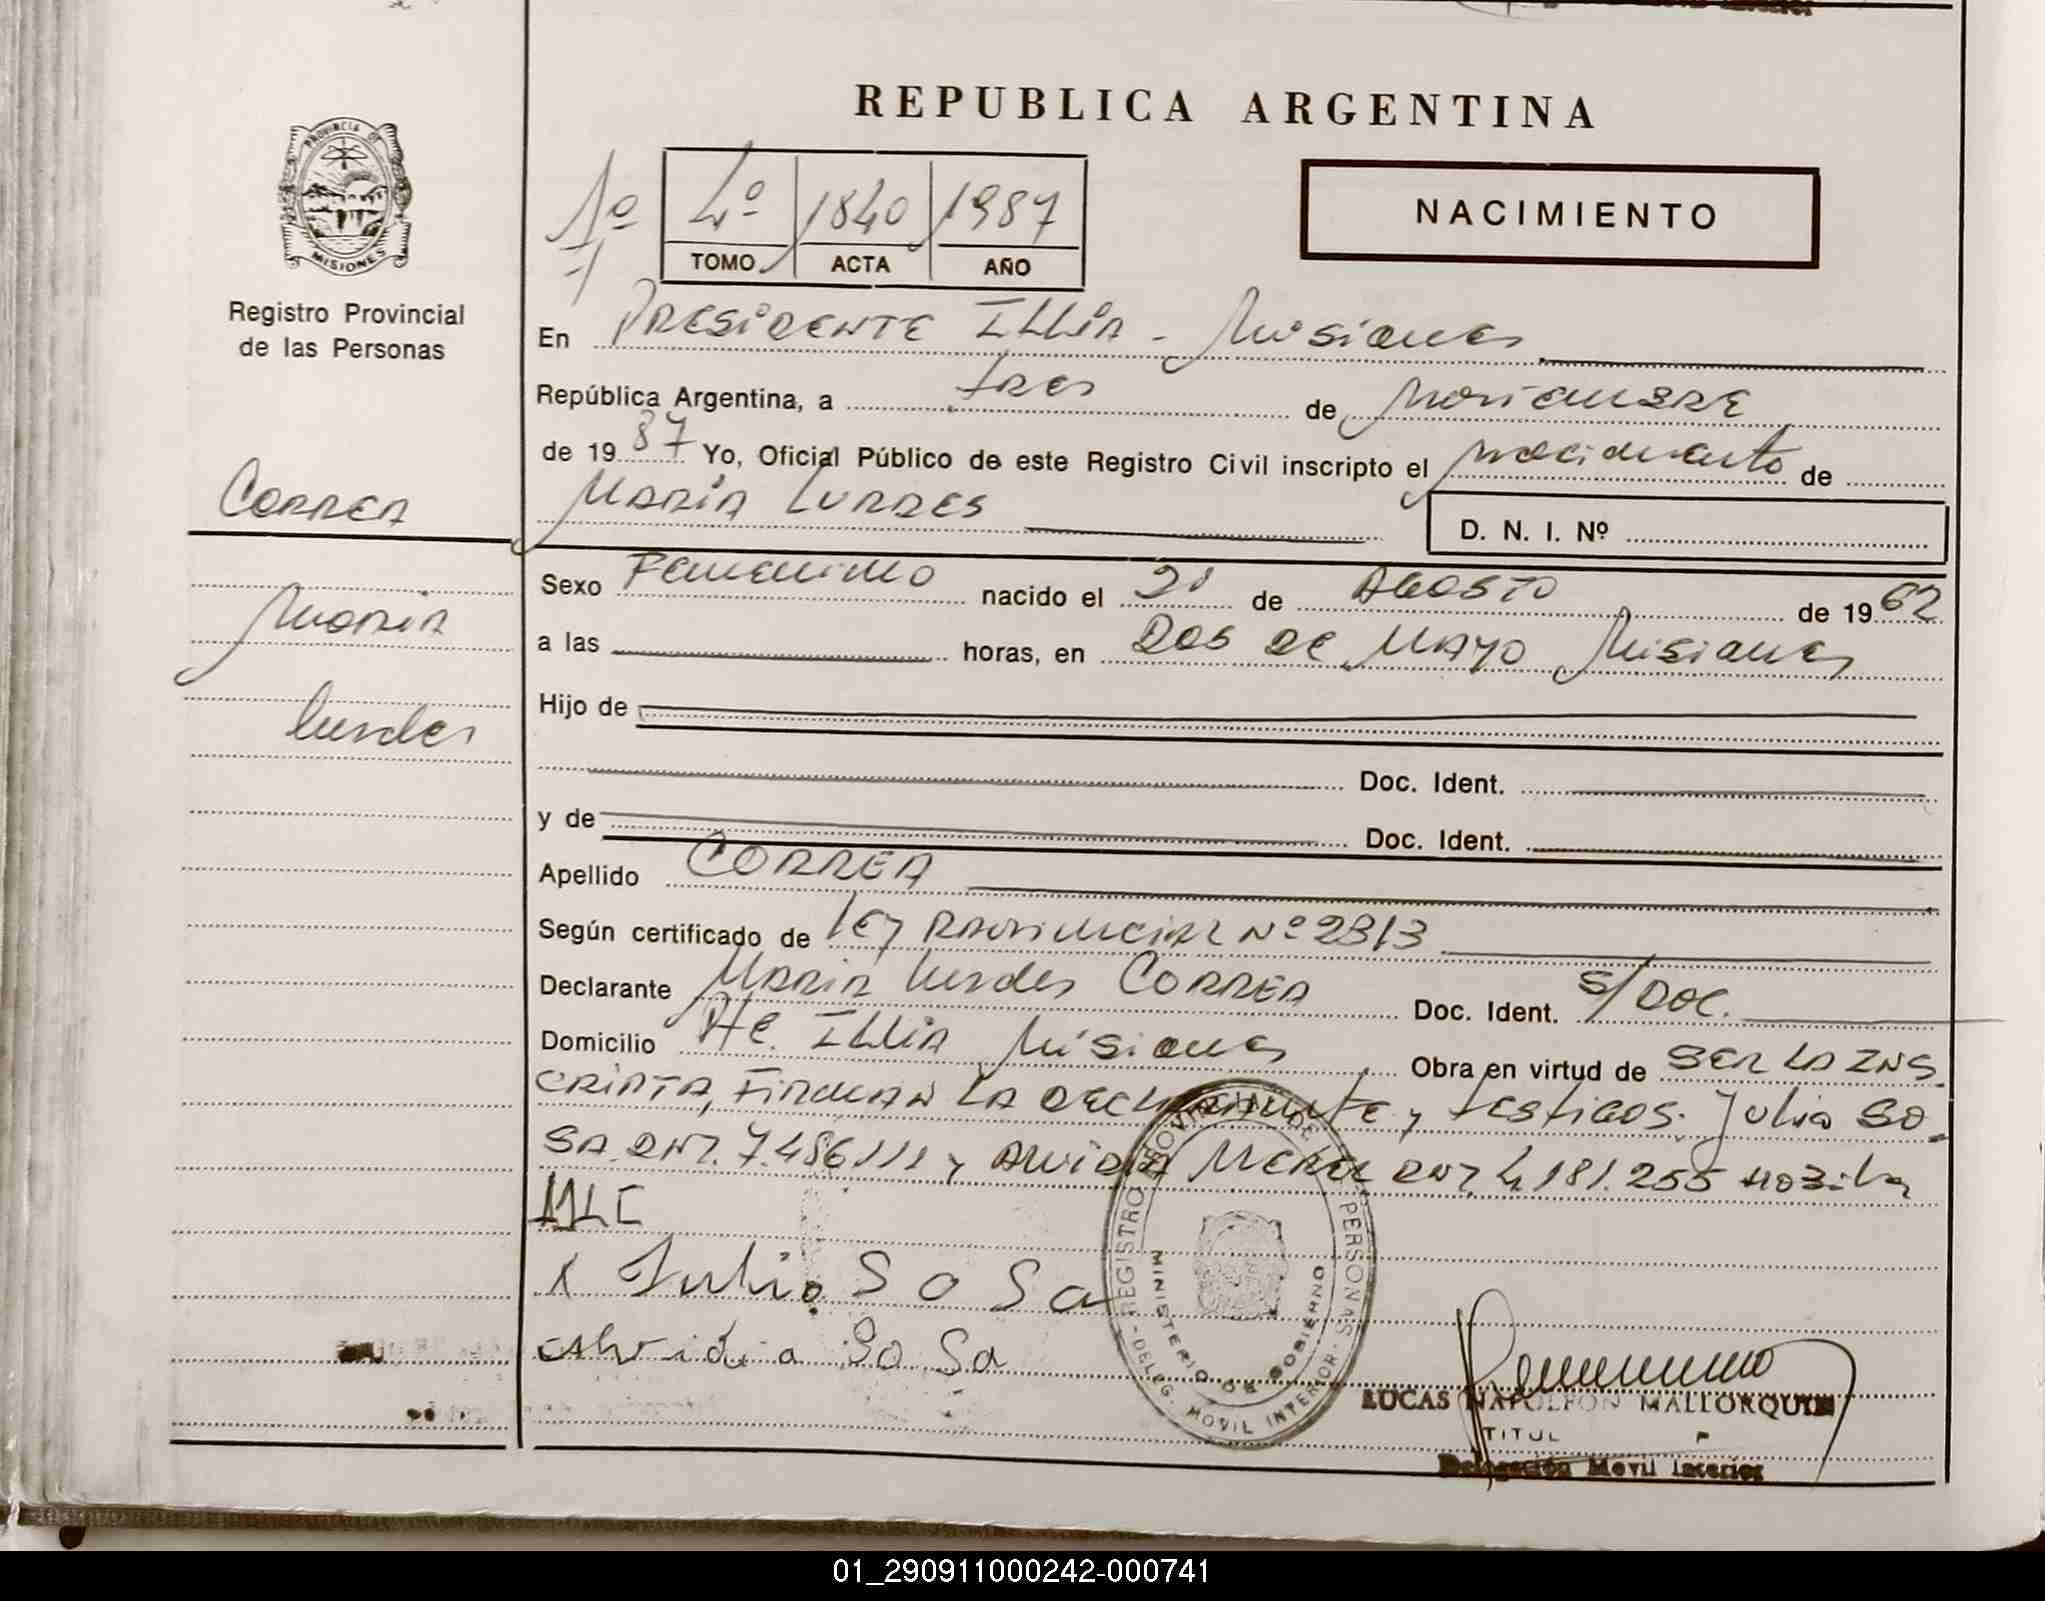 REPUBLICA ARGENTINA
PROVINCIA DE
MISIONES
Registro Provincial
de las Personas
1º
4º 1840 1987
TOMO ACTA AÑO
NACIMIENTO
En PRESIDENTE ILLIA - Misiones
República Argentina, a tres de NOVIEMBRE
de 19 87 Yo, Oficial Público de este Registro Civil inscripto el nacimiento de
MARIA LURDES
D. N. I. Nº
CORREA
MARIA
Lurdes
Sexo Femenino nacido el de AGOSTO de 19 62
a las horas, en DOS DE MAYO Misiones
Hijo de
Doc. Ident.
y de Doc. Ident.
Apellido CORREA
Según certificado de LEY PROVINCIAL Nº 2313
Declarante MARIA Lurdes CORREA Doc. Ident. S/DOC.
Domicilio Pte. ILLIA Misiones Obra en virtud de SER LA INS
CRIPTA, FIRMAN LA DECLARANTE y testigos: Julio SO-
SA DNI. 7.486.111 y ALVIDIA DNI 4.181.255
MLC
x Julio SoSa
Alvidia SoSa
REGISTRO PROVINCIAL DE LAS PERSONAS
MINISTERIO DE GOBIERNO
-DELEG. MOVIL INTERIOR-
LUCAS NAPOLEON MALLORQUIN
TITUL
Delegación Movil Interior
01_290911000242-000741